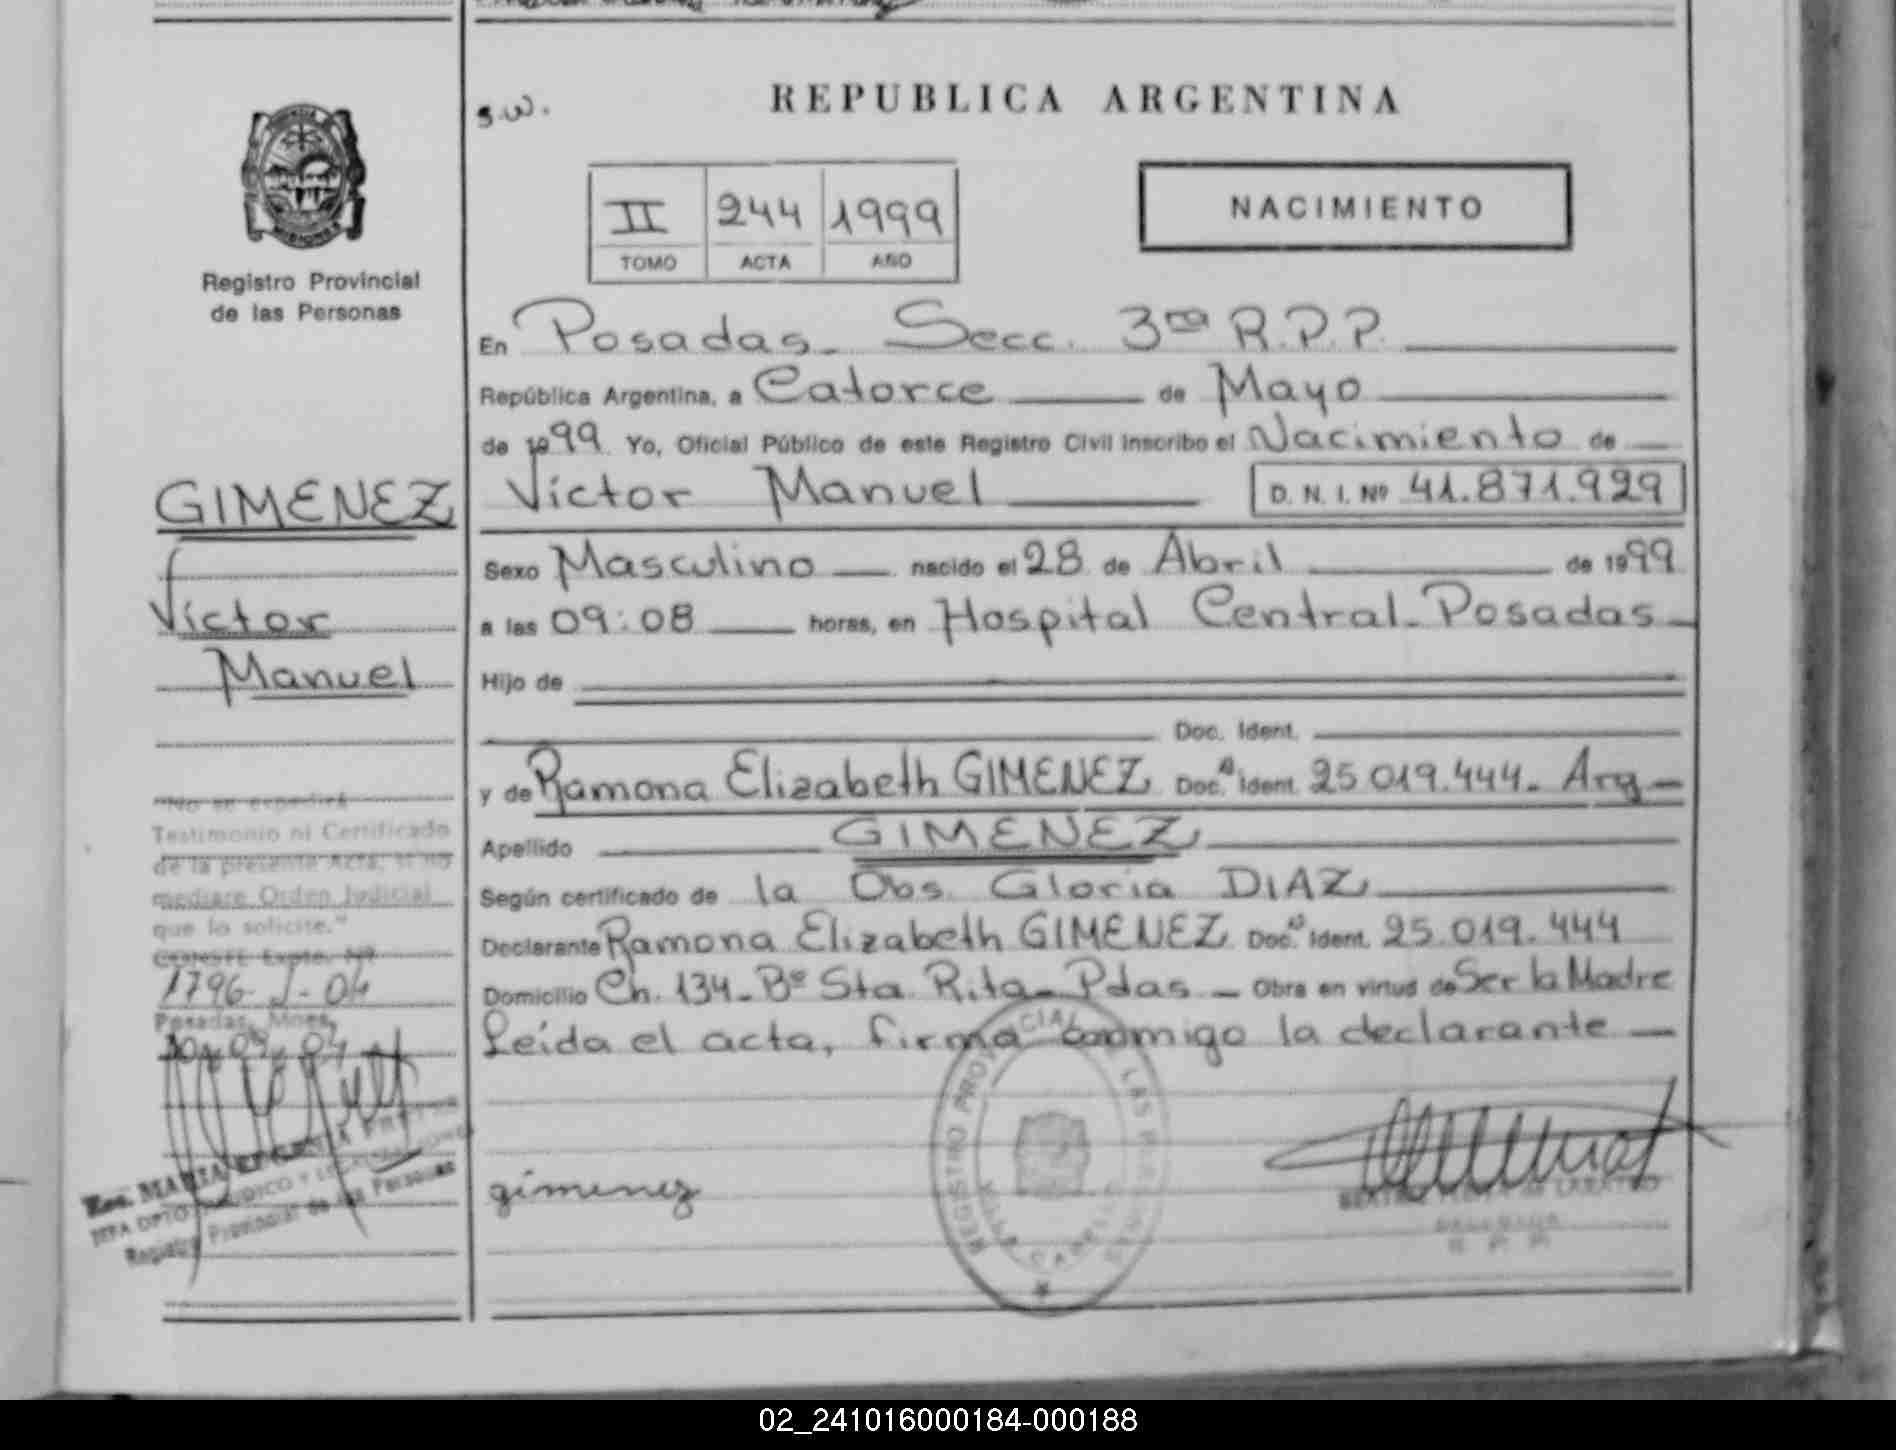 REPUBLICA ARGENTINA
s.w.
II 244 1999
TOMO ACTA AÑO
NACIMIENTO
MISIONES
Registro Provincial
de las Personas
En Posadas - Secc. 3ra R.P.P.
República Argentina, a Catorce de Mayo
de 1999 Yo, Oficial Público de este Registro Civil inscribo el Nacimiento de
GIMENEZ
Víctor
Manuel
Víctor Manuel D. N. I. Nº 41.871.929
Sexo Masculino nacido el 28 de Abril de 1999
a las 09:08 horas, en Hospital Central - Posadas
Hijo de
Doc. Ident.
y de Ramona Elizabeth GIMENEZ Doc. Ident. 25.019.444 - Arg
Apellido GIMENEZ
Según certificado de la Obs. Gloria DIAZ
Declarante Ramona Elizabeth GIMENEZ Doc. Ident. 25.019.444
Domicilio Ch. 134 - Bº Sta Rita - Pdas - Obra en virtud de Ser la Madre
Leída el acta, firma conmigo la declarante
"No se expedirá
Testimonio ni Certificado
de la presente Acta, si no
mediare Orden Judicial
que lo solicite."
CONSTE Expte. Nº
1796 - J - 04
Posadas, Mnes,
gimenez
REGISTRO PROVINCIAL DE LAS PERSONAS
Registro Provincial de las Personas
R. P. P.
02_241016000184-000188